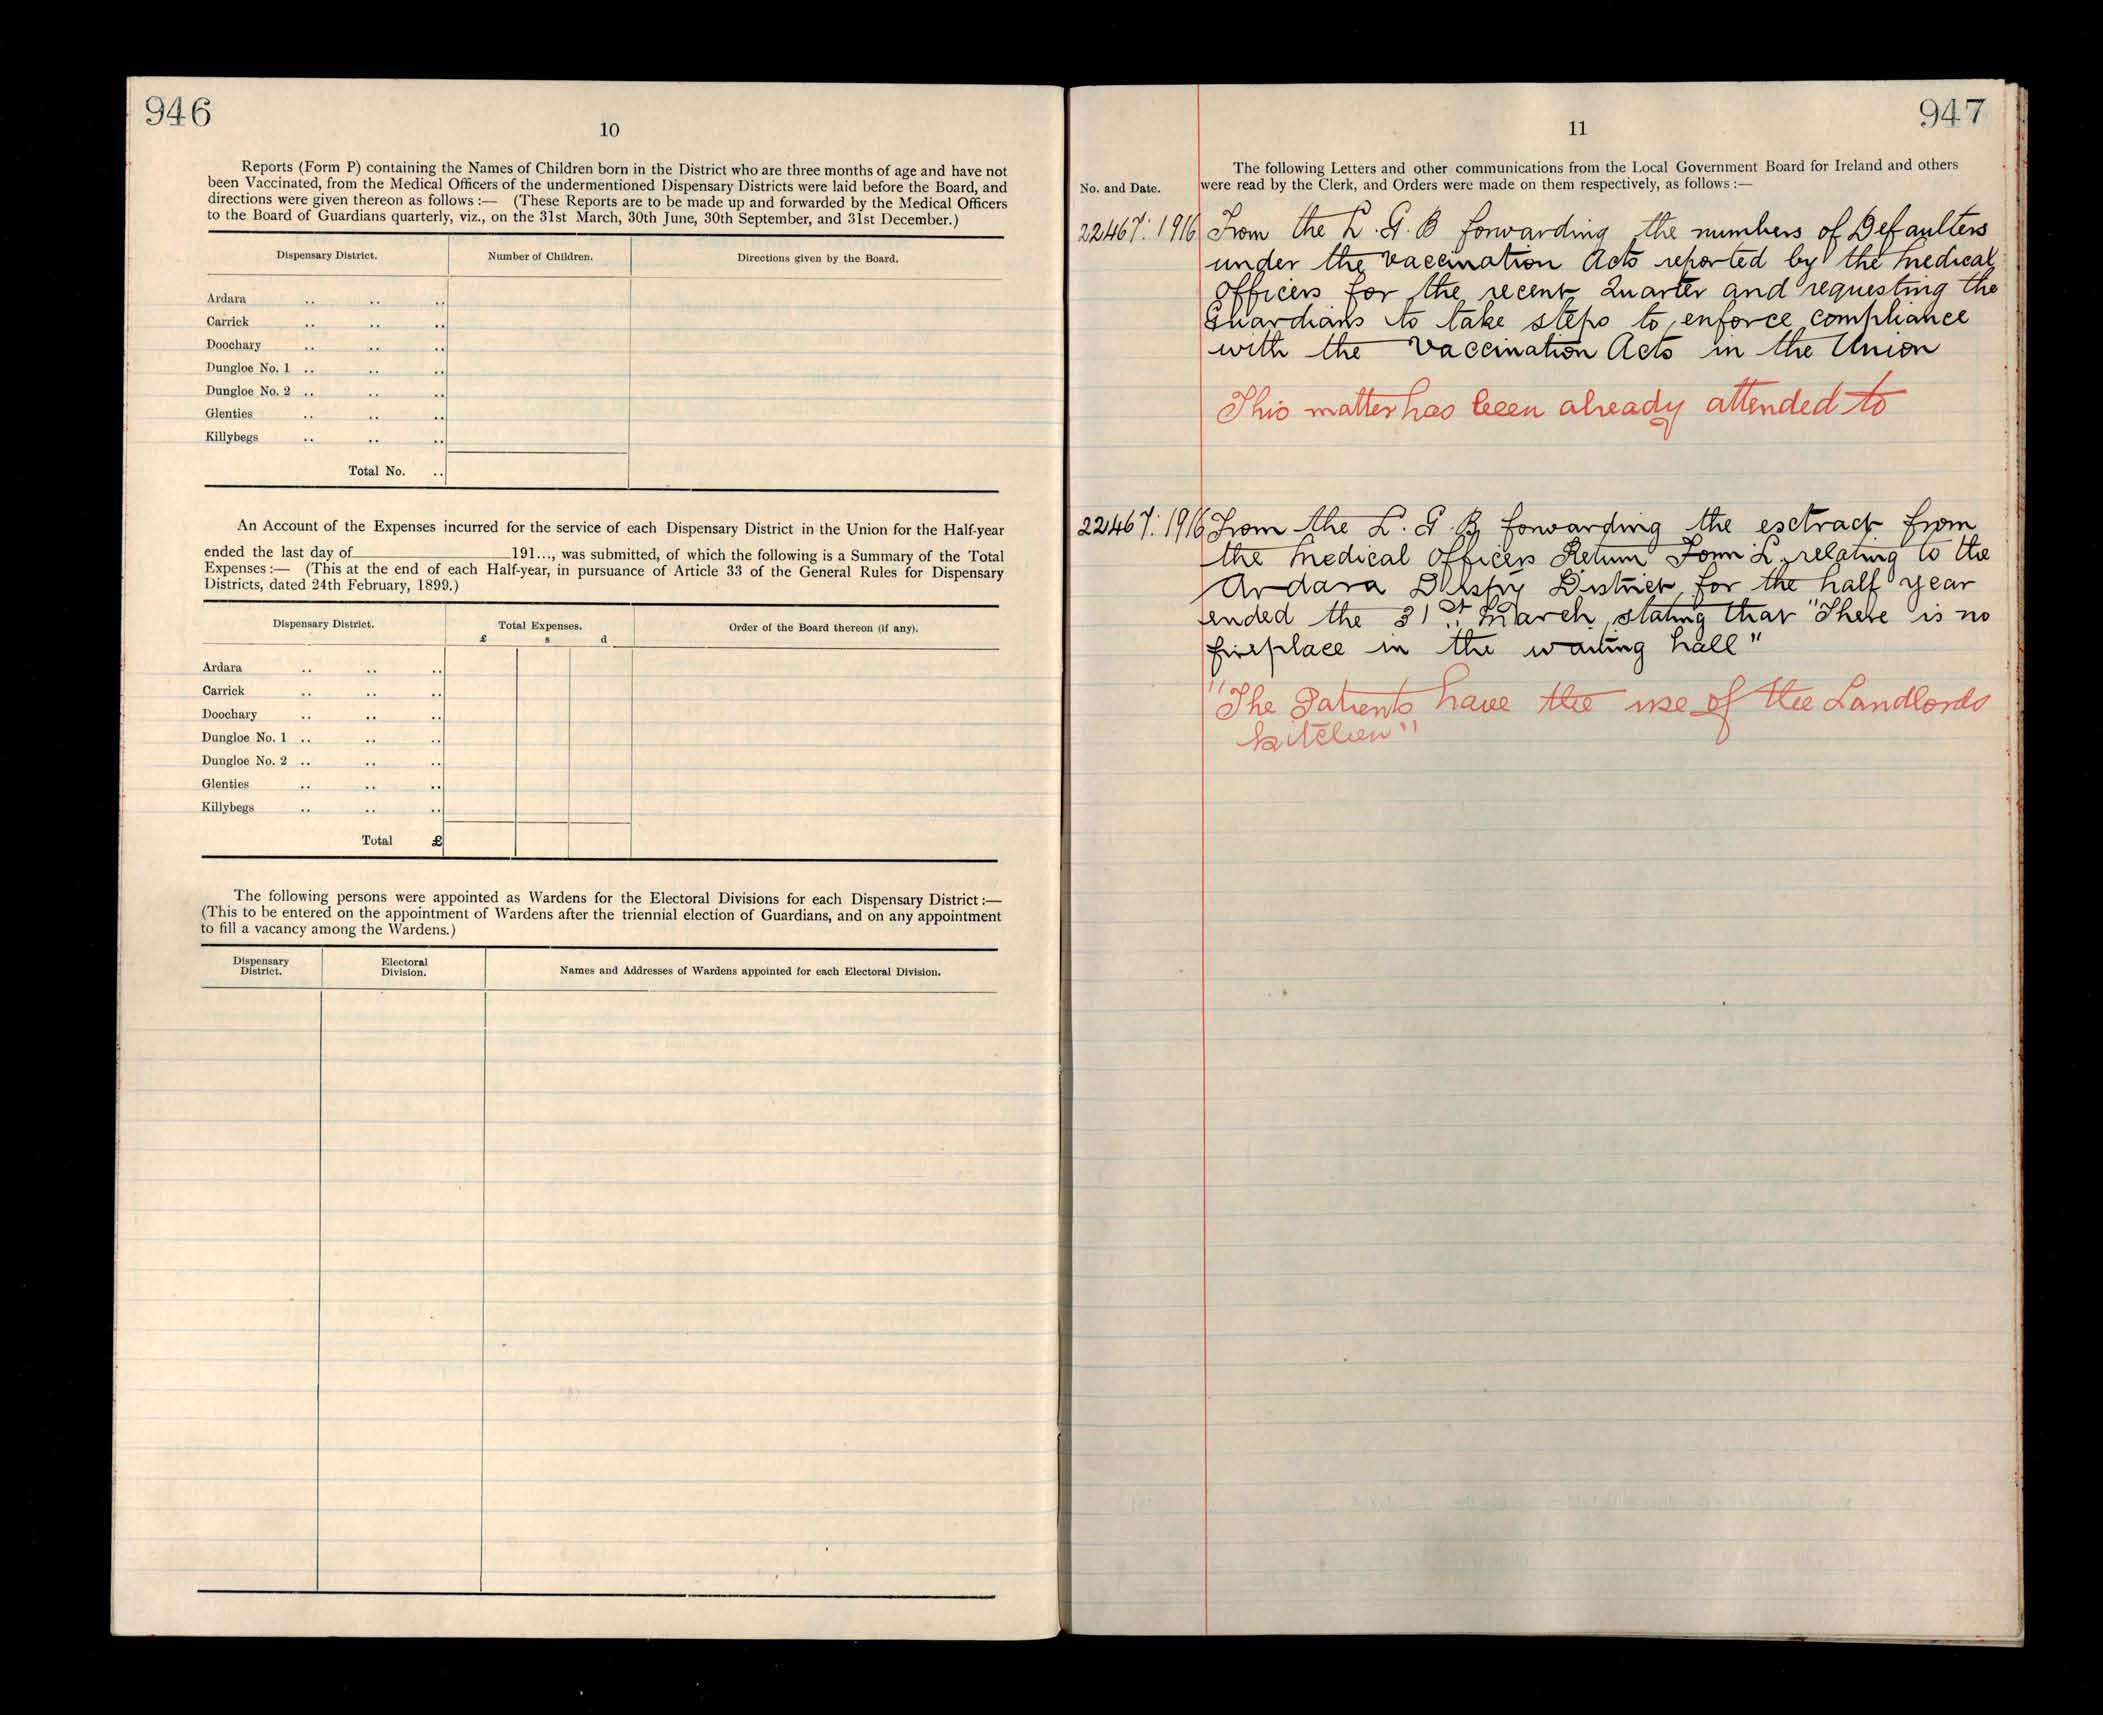 946
10
Reports (Form P) containing the Names of Children born in the District who are three months of age and have not
been Vaccinated, from the Medical Officers of the undermentioned Dispensary Districts were laid before the Board, and
directions were given thereon as follows :— (These Reports are to be made up and forwarded by the Medical Officers
to the Board of Guardians quarterly, viz., on the 31st March, 30th June, 30th September, and 31st December.)
Dispensary District. Number of Children. Directions given by the Board.
Ardara .. .. ..
Carrick .. .. ..
Doochary .. .. ..
Dungloe No. 1 .. .. ..
Dungloe No. 2 .. .. ..
Glenties .. .. ..
Killybegs .. .. ..
Total No. ..
An Account of the Expenses incurred for the service of each Dispensary District in the Union for the Half-year
ended the last day of 191..., was submitted, of which the following is a Summary of the Total
Expenses :— (This at the end of each Half-year, in pursuance of Article 33 of the General Rules for Dispensary
Districts, dated 24th February, 1899.)
Dispensary District. Total Expenses. Order of the Board thereon (if any).
£ s d
Ardara .. .. ..
Carrick .. .. ..
Doochary .. .. ..
Dungloe No. 1 .. .. ..
Dungloe No. 2 .. .. ..
Glenties .. .. ..
Killybegs .. .. ..
Total £
The following persons were appointed as Wardens for the Electoral Divisions for each Dispensary District :—
(This to be entered on the appointment of Wardens after the triennial election of Guardians, and on any appointment
to fill a vacancy among the Wardens.)
Dispensary District. Electoral Division. Names and Addresses of Wardens appointed for each Electoral Division.
947
11
The following Letters and other communications from the Local Government Board for Ireland and others
No. and Date. were read by the Clerk, and Orders were made on them respectively, as follows :—
22467: 1916 From the L. G. B forwarding the numbers of Defaulters
under the Vaccination Acts reported by the Medical
Officers for the recent Quarter and requesting the
Guardians to take steps to enforce compliance
with the Vaccination Acts in the Union
This matter has been already attended to
22467: 1916 From the L. G. B, forwarding the esctract from
the Medical Officers Return Form L, relating to the
Ardara Dispy District for the half year
ended the 31st March, stating that "There is no
fireplace in the waiting hall"
"The Patients have the use of the Landlords
kitchen"